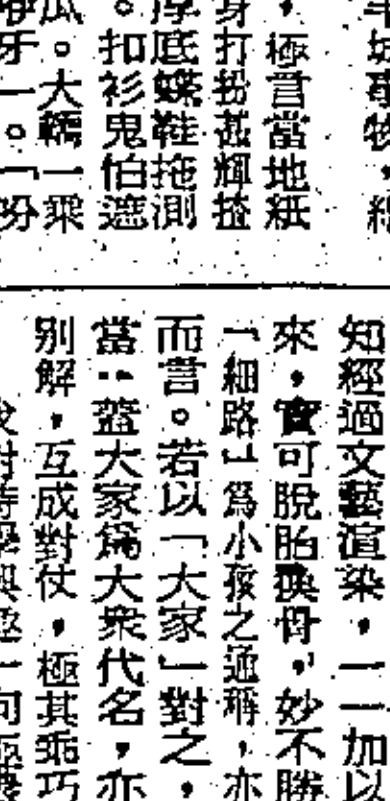 ，極言當地紙
身打扮甚輝揸
厚底蝶鞋拖測
。扣衫鬼怕遮
瓜。大轎一乘
牙一。「吩
知經過文藝渲染，一一加以
來，實可脫胎換骨，妙不勝
「細路」爲小孩之通稱，亦
而言。若以「大家」對之，
當：蓋大家爲大衆代名，亦
別解，互成對仗，極其乖巧